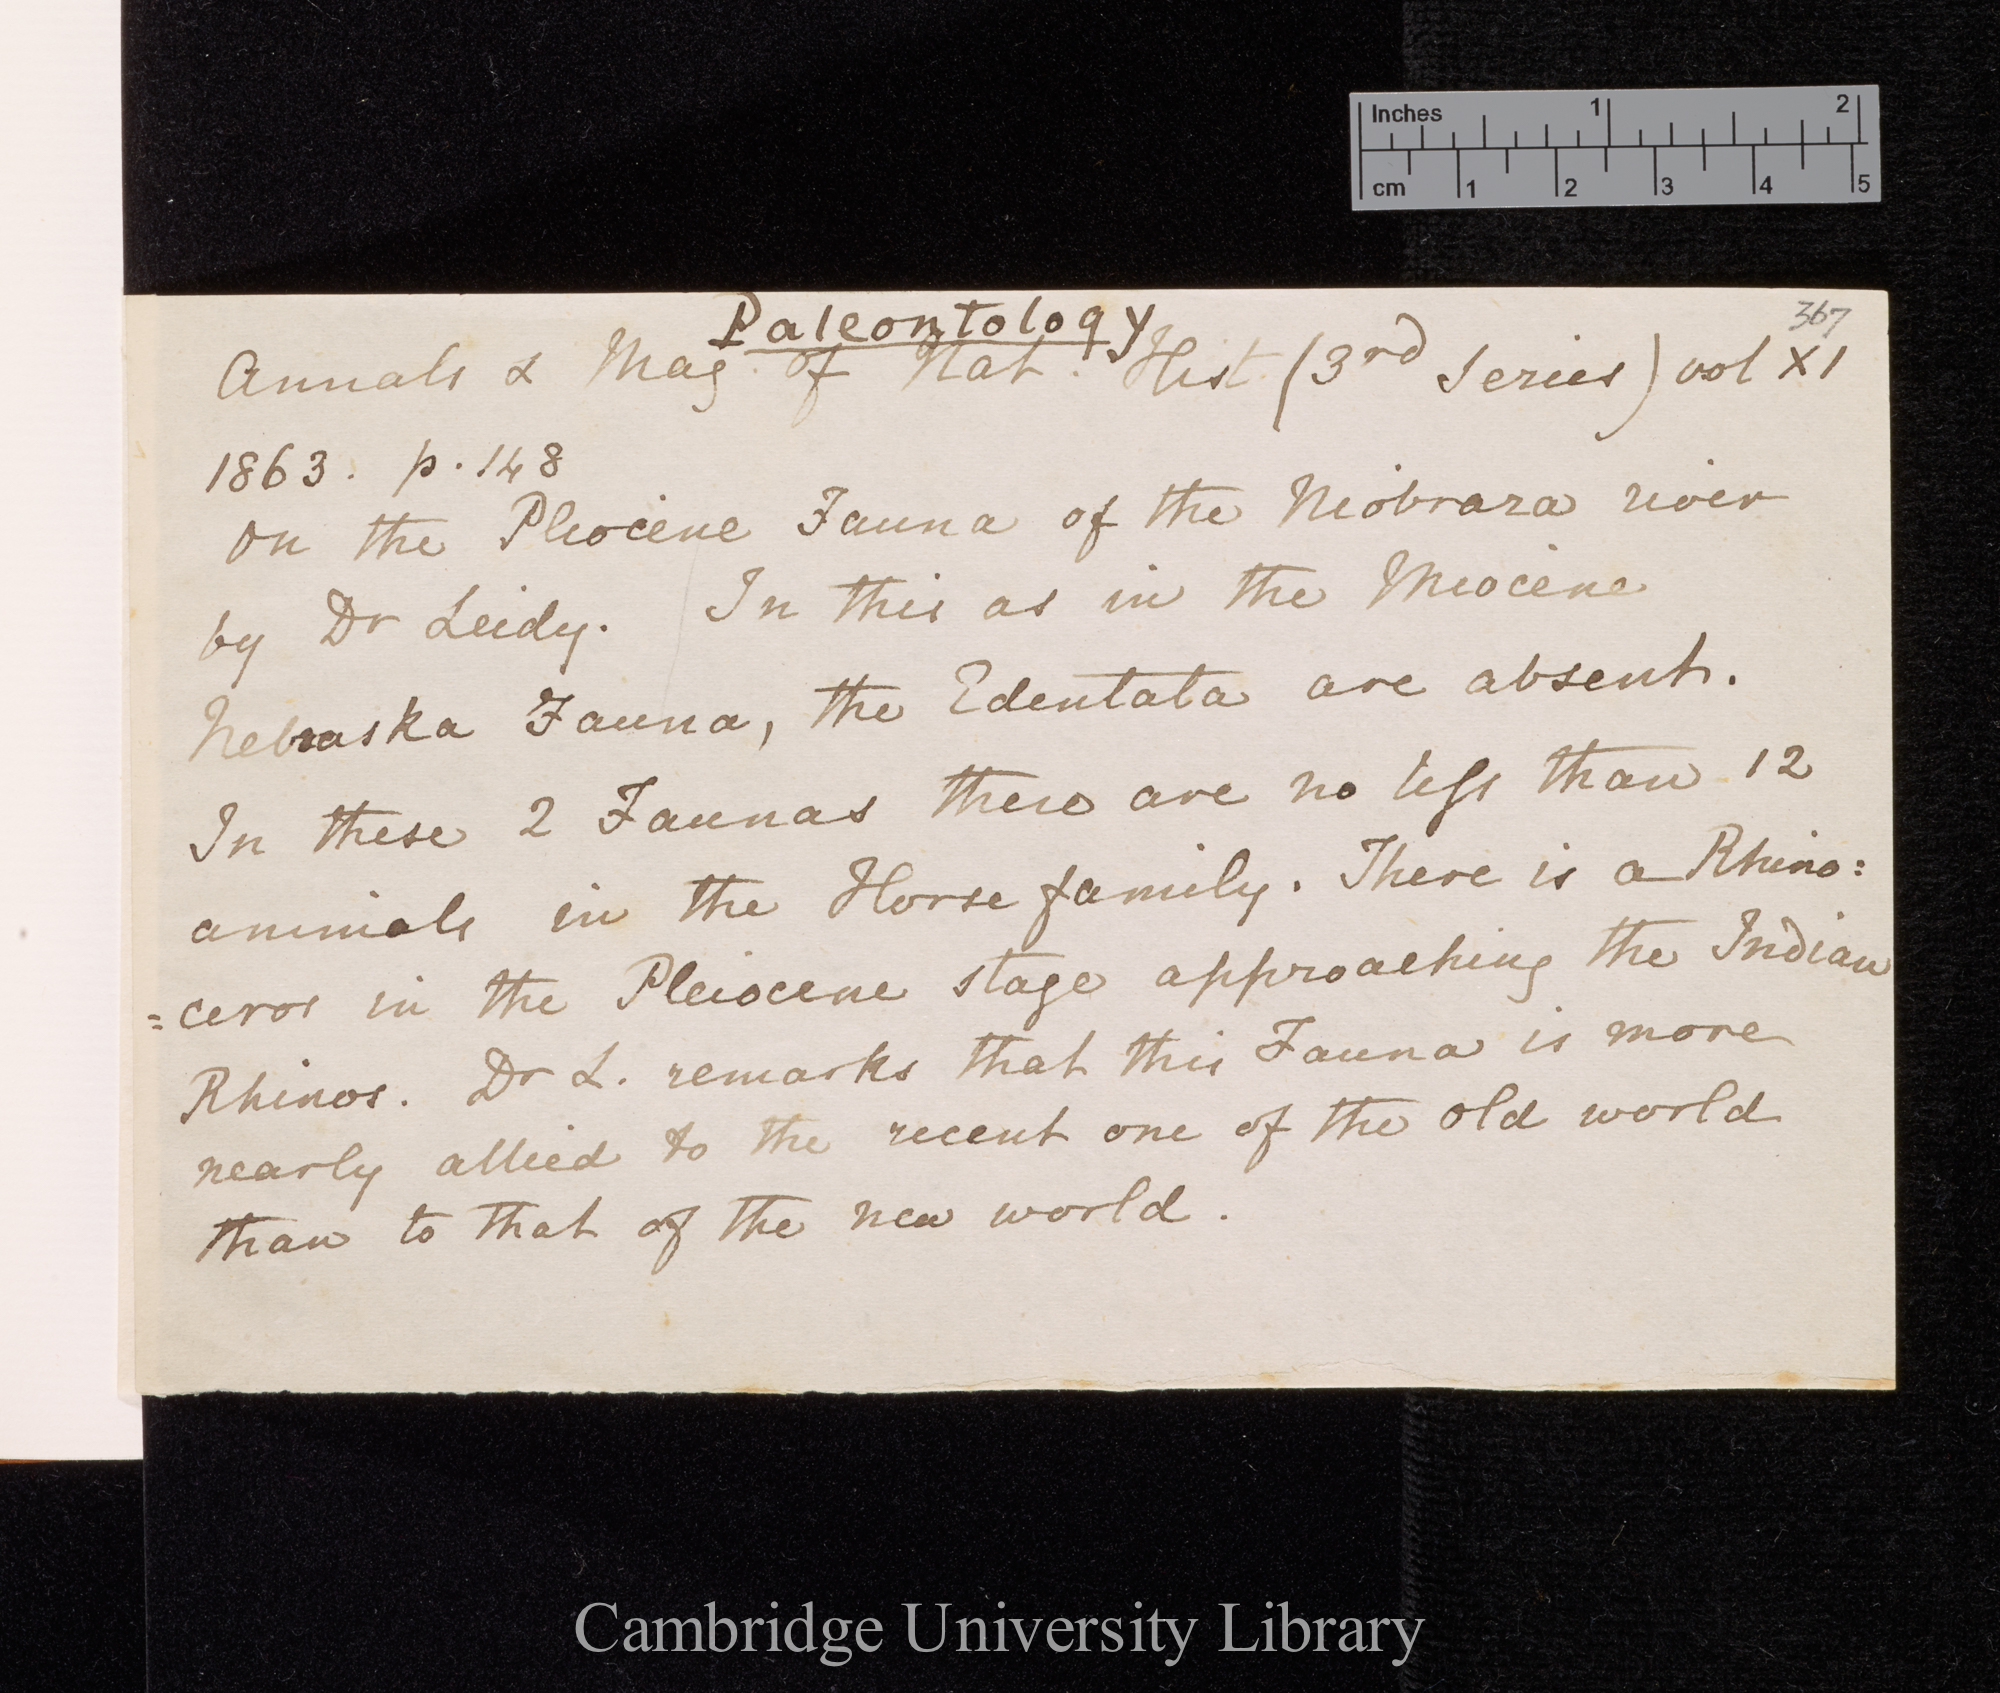 Inches 1 2
cm 1 2 3 4 5
Paleontology
367
Annals & Mag. of Nat. Hist. (3rd Series) vol XI
1863. p. 148
On the Pliocene Fauna of the Niobrara river
by Dr Leidy. In this as in the Miocene
Nebraska Fauna, the Edentata are absent.
In these 2 Faunas there are no less than 12
animals in the Horse family. There is a Rhino=
=ceros in the Pleiocene stage approaching the Indian
Rhinos. Dr L. remarks that this Fauna is more
nearly allied to the recent one of the old world
than to that of the new world.
Cambridge University Library